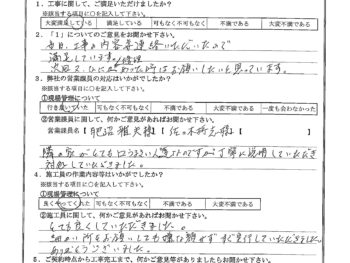 1. 工事に関して、ご満足いただけましたか?
※該当する項目に○を記入して下さい。
大変満足している 満足している 可も無く不可も無く 不満である 大変不満である
2.「1」についてのご意見をお聞かせ下さい。
毎日、工事の内容を連絡いただいたので
満足しています。
次回又、ひびがあった時はお願いしたいと思っています。
3. 弊社の営業課員の対応はいかがでしたか?
※該当する項目に○を記入して下さい。
①現場管理について
行き届いていた 可も無く不可も無く 不満である 大変不満である 一度も会わなかった
②営業課員に関して、何かご意見があればお聞かせ下さい。
営業課員名【 肥沼 雅天樹 】【 佐々木 】【 】
隣の家がとても口うるさい人達ですが丁寧に説明していただき
対処していただきました。
4. 施工員の作業内容等はいかがでしたか?
※該当する項目に○を記入して下さい。
①現場管理について
良くやってくれた 可も無く不可も無く 不満である 大変不満である
②施工員に関して、何かご意見があればお聞かせ下さい。
とても良くしていただきました。
細かい所をお願いしても嫌な顔せずすぐ実行していただきました。
ありがとうございました。
5. ご契約時点から工事完工まで、何かご意見等がありましたらお聞かせ下さい。